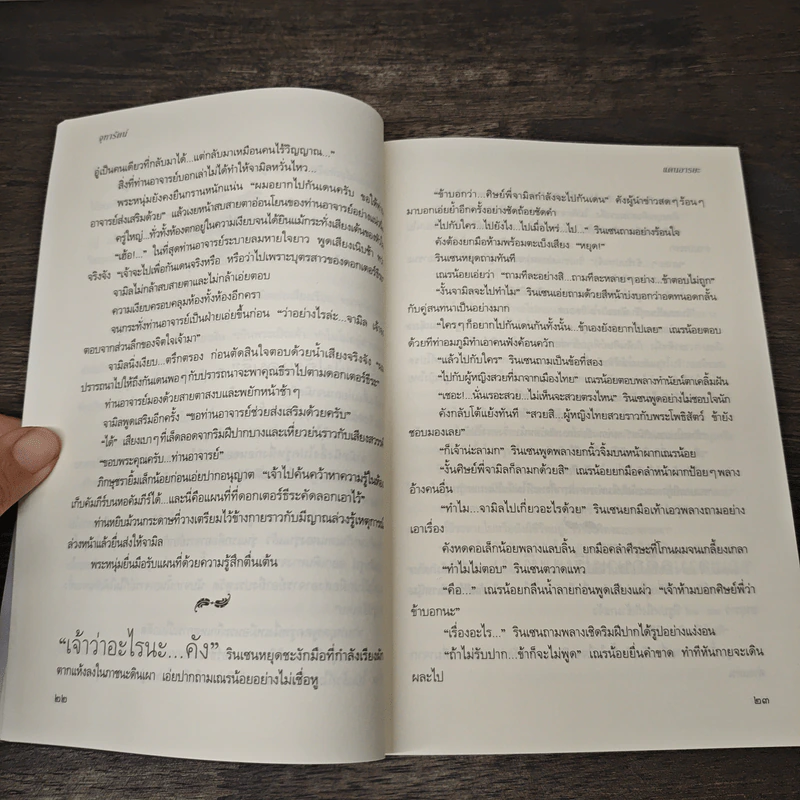 จุฑารัตน์
อู่เป็นคนเดียวที่กลับมาได้...แต่กลับมาเหมือนคนไร้วิญญาณ..."
สิ่งที่ท่านอาจารย์บอกเล่าไม่ได้ทำให้จามิลหวั่นไหว...
พระหนุ่มยังคงยืนกรานหนักแน่น "ผมอยากไปกันเดนครับ ขอให้
อาจารย์ส่งเสริมด้วย" แล้วเงยหน้าสบสายตาอ่อนโยนของท่านอาจารย์อย่าง
ครู่ใหญ่...ทั่วทั้งห้องตกอยู่ในความเงียบจนได้ยินแม้กระทั่งเสียงเต้นของ
"เฮ้อ!..." ในที่สุดท่านอาจารย์ระบายลมหายใจยาว พูดเสียงเนิบช้า
จริงจัง "เจ้าจะไปเพื่อกันเดนจริงหรือ หรือว่าไปเพราะบุตรสาวของดอกเตอร์ธีระ
จามิลไม่กล้าสบสายตาและไม่กล้าเอ่ยตอบ
ความเงียบครอบคลุมห้องทั้งห้องอีกครา
จนกระทั่งท่านอาจารย์เป็นฝ่ายเอ่ยขึ้นก่อน "ว่าอย่างไรล่ะ...จามิล
ตอบจากส่วนลึกของจิตใจเจ้ามา"
จามิลนิ่งเงียบ...ตรึกตรอง ก่อนตัดสินใจตอบด้วยน้ำเสียงจริงจัง
ปรารถนาไปให้ถึงกันเดนพอๆ กับปรารถนาจะพาคุณธีราไปตามดอกเตอร์ธีระ"
ท่านอาจารย์มองด้วยสายตาสงบและพยักหน้าช้าๆ
จามิลพูดเสริมอีกครั้ง "ขอท่านอาจารย์ช่วยส่งเสริมด้วยครับ"
"ได้" เสียงเบาๆ ที่เล็ดลอดจากริมฝีปากบางและเหี่ยวย่นราวกับเสียงสวรรค์
"ขอบพระคุณครับ...ท่านอาจารย์"
ภิกษุชรายิ้มเล็กน้อยก่อนเอ่ยปากอนุญาต "เจ้าไปค้นคว้าหาความรู้ในห้อง
เก็บคัมภีร์บนหอคัมภีร์ได้...และนี่คือแผนที่ที่ดอกเตอร์ธีระคัดลอกเอาไว้"
ท่านหยิบม้วนกระดาษที่วางเตรียมไว้ข้างกายราวกับมีญาณล่วงรู้เหตุการณ์
ล่วงหน้าแล้วยื่นส่งให้จามิล
พระหนุ่มยื่นมือรับแผนที่ด้วยความรู้สึกตื่นเต้น
"เจ้าว่าอะไรนะ...คัง" รินเซนหยุดชะงักมือที่กำลังเรียง
ตากแห้งลงในภาชนะดินเผา เอ่ยปากถามเณรน้อยอย่างไม่เชื่อหู
๒๒
แดนอารยะ
"ข้าบอกว่า...ศิษย์พี่จามิลกำลังจะไปกันเดน" คังผู้นำข่าวสดๆ ร้อนๆ
มาบอกเอ่ยย้ำอีกครั้งอย่างชัดถ้อยชัดคำ
"ไปกับใคร...ไปยังไง...ไปเมื่อไหร่...ไป..." รินเซนถามอย่างร้อนใจ
คังต้องยกมือห้ามพร้อมตะเบ็งเสียง "หยุด!"
รินเซนหยุดถามทันที
เณรน้อยเอ่ยว่า "ถามทีละอย่างสิ...ถามทีละหลายๆ อย่าง...ข้าตอบไม่ถูก"
"งั้นจามิลจะไปทำไม" รินเซนเอ่ยถามด้วยสีหน้าบ่งบอกว่าอดทนอดกลั้น
กับคู่สนทนาเป็นอย่างมาก
"ใครๆ ก็อยากไปกันเดนกันทั้งนั้น...ข้าเองยังอยากไปเลย" เณรน้อยตอบ
ด้วยทีท่าอมภูมิทำเอาคนฟังค้อนควัก
"แล้วไปกับใคร" รินเซนถามเป็นข้อที่สอง
"ไปกับผู้หญิงสวยที่มาจากเมืองไทย" เณรน้อยตอบพลางทำนัยน์ตาเคลิ้มฝัน
"เชอะ!...นั่นเรอะสวย...ไม่เห็นจะสวยตรงไหน" รินเซนพูดอย่างไม่ชอบใจนัก
คังกลับโต้แย้งทันที "สวยสิ...ผู้หญิงไทยสวยราวกับพระโพธิสัตว์ ข้ายัง
ชอบมองเลย"
"ก็เจ้าน่ะลามก" รินเซนพูดพลางยกนิ้วจิ้มบนหน้าผากเณรน้อย
"งั้นศิษย์พี่จามิลก็ลามกด้วยสิ" เณรน้อยยกมือคลำหน้าผากป้อยๆ พลาง
อ้างคนอื่น
"ทำไม...จามิลไปเกี่ยวอะไรด้วย" รินเซนยกมือเท้าเอวพลางถามอย่าง
เอาเรื่อง
คังหดคอเล็กน้อยพลางแลบลิ้น ยกมือคลำศีรษะที่โกนผมจนเกลี้ยงเกลา
"ทำไมไม่ตอบ" รินเซนตวาดแหว
"คือ..." เณรน้อยกลืนน้ำลายก่อนพูดเสียงแผ่ว "เจ้าห้ามบอกศิษย์พี่ว่า
ข้าบอกนะ"
"เรื่องอะไร..." รินเซนถามพลางเชิดริมฝีปากได้รูปอย่างแง่งอน
"ถ้าไม่รับปาก...ข้าก็จะไม่พูด" เณรน้อยยื่นคำขาด ทำทีหันกายจะเดิน
ผละไป
๒๓